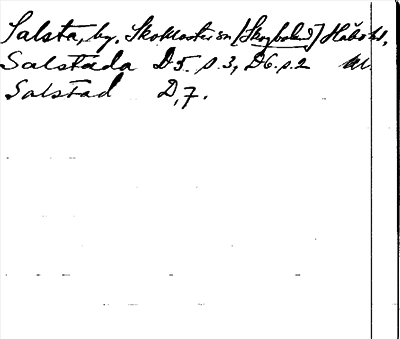 Salsta, by, Skokloster sn [Skogbolund] Håbo hd,
Salstada D5. s.3, D6. s.2 Ul.
Salstad D, 7.